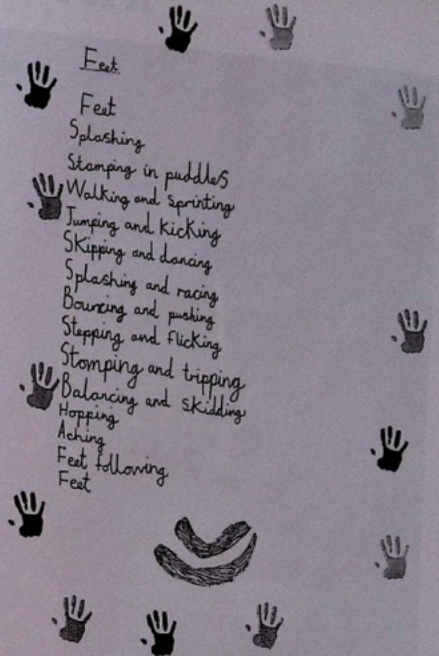 Feet
Feet
Splashing
Stamping in puddles
Walking and sprinting
Jumping and kicking
Skipping and dancing
Splashing and racing
Bouncing and pushing
Stepping and flicking
Stomping and tripping
Balancing and skidding
Hopping
Aching
Feet following
Feet